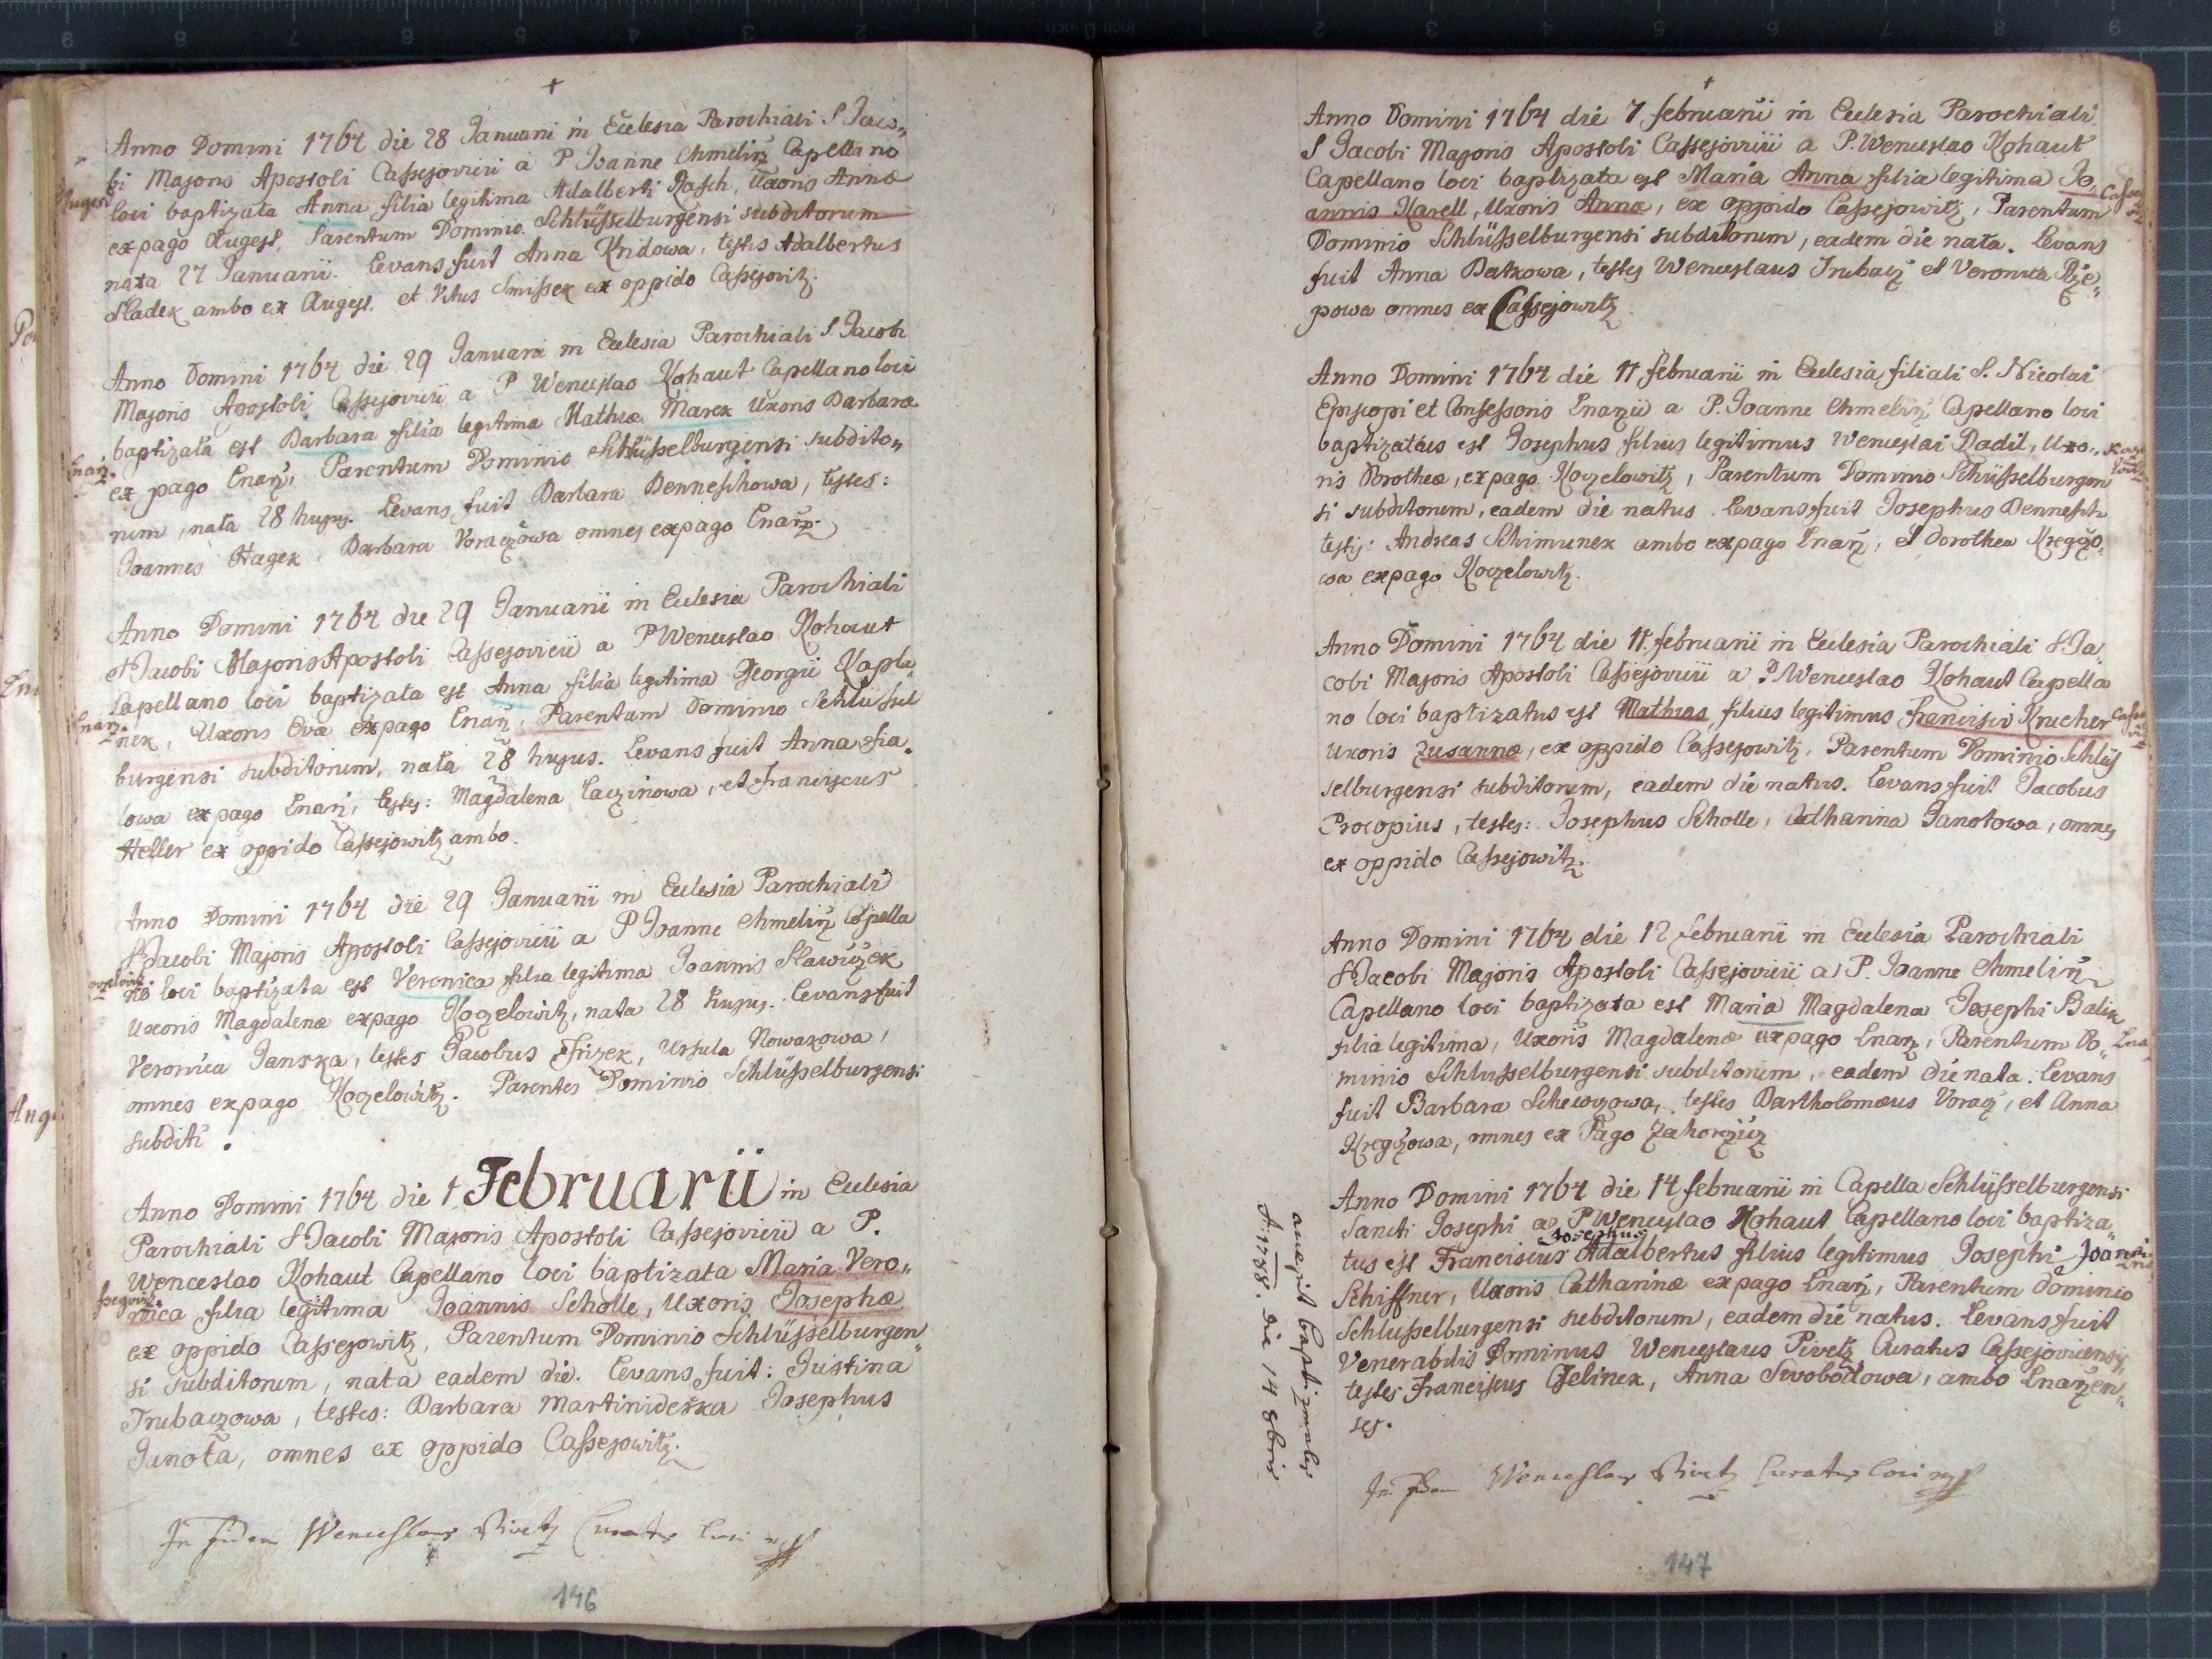 Anno Domini 1764 die 28 Januarii in Ecclesia Parochiali S Jaco„
bi Majoris Apostoli Cassejovicii a P Joanne Chmelirz Capellano
loci baptizata Anna filia legitima Adalberti Rasch, Uxoris Annæ
ex pago Augest, Parentum Dominio Schlüsselburgensi subditorum
nata 27 Januarii. Levans fuit Anna Kridowa, testes Adalbertus
Sladek ambo ex Augest. et Vitus Smissek ex oppido Cassejovitz.
Anno Domini 1764 die 29 Januarii in Ecclesia Parochiali S. Jacobi
Majoris Apostoli Cassejovicii a P Wenceslao Kohaut Capellano loci
baptizata est Barbara filia legitima Mathiæ Marek Uxoris Barbaræ
Enarz.
ex pago Enarz, Parentum Dominio Schlüsselburgensi subdito„
rum, nata 28 hujus. Levans fuit Barbara Benneschowa, testes:
Joannes Hagek, Barbara Voraczowa omnes ex pago Enarz.
Anno Domini 1764 die 29 Januarii in Ecclesia Parochiali
S Jacobi Majoris Apostoli Cassejovicii a P Wenceslao Kohaut
Capellano loci baptizata est Anna filia legitima Georgii Kapla„
Enarz
nek, Uxoris Evæ ex pago Enarz, Parentum Dominio Schlüssel
burgensi subditorum, nata 28 hujus. Levans fuit Anna Fia„
lowa ex pago Enarz, testes: Magdalena Laczinowa, et Franciscus
Heller ex oppido Cassejowitz ambo.
Anno Domini 1764 die 29 Januarii in Ecclesia Parochiali
S Jacobi Majoris Apostoli Cassejovicii a P Joanne Chmelirz Capella
no loci baptizata est Veronica filia legitima Joannis Slawiczek
Uxoris Magdalenæ ex pago Koczelowitz, nata 28 hujus. Levans fuit
Veronica Janska, testes Jacobus Frizek, Ursula Nowakowa,
omnes ex pago Koczelowitz. Parentes Dominio Schlüsselburgensi
subditi.
Anno Domini 1764 die 1 Februarii in Ecclesia
Parochiali S Jacobi Majoris Apostoli Cassejovicii a P.
Wenceslao Kohaut Capellano loci baptizata Maria Vero„
nica filia legitima Joannis Scholle, Uxoris Josephæ
ex oppido Cassejowitz, Parentum Dominio Schlüsselburgen„
si subditorum, nata eadem die. Levans fuit: Justina
Trubaczowa, testes: Barbara Martinideska Josephus
Janota, omnes ex oppido Cassejowitz.
In fidem Wenceslaus Pivetz Curatus loci mpp
146
Anno Domini 1764 die 7 februarii in Ecclesia Parochiali
S Jacobi Majoris Apostoli Cassejovicii a P. Wenceslao Kohaut
Capellano loci baptizata est Maria Anna filia legitima Jo„
annis Karell, Uxoris Annæ, ex oppido Cassejowitz, Parentum
Dominio Schlüsselburgensi subditorum, eadem die nata. Levans
fuit Anna Batkowa, testes Wenceslaus Trubacz et Veronica Rze„
powa omnes ex Cassejowitz
Anno Domini 1764 die 11 februarii in Ecclesia filiali S. Nicolai
Episcopi et Confessoris Enarzii a P. Joanne Chmelirz Capellano loci
baptizatus est Josephus filius legitimus Wenceslai Radil, Uxo„
ris Dorotheæ, ex pago Koczelowitz, Parentum Dominio Schlüsselburgen
si subditorum, eadem die natus. Levans fuit Josephus Bennesch
testes: Andreas Schimunek ambo ex pago Enarz, et Dorothea Kregczo„
wa ex pago Koczelowitz.
Anno Domini 1764 die 11. februarii in Ecclesia Parochiali S Ja„
cobi Majoris Apostoli Cassejovicii a P Wenceslao Kohaut Capella
no loci baptizatus est Mathias filius legitimus Francisci Krucher
Uxoris Zusannæ, ex oppido Cassejowitz, Parentum Dominio Schlüs
selburgensi subditorum, eadem die natus. Levans fuit Jacobus
Procopius, testes: Josephus Scholle, Catharina Janotowa, omnes
ex oppido Cassejowitz.
Anno Domini 1764 die 12 februarii in Ecclesia Parochiali
S Jacobi Majoris Apostoli Cassejovicii a P. Joanne Chmelirz
Capellano loci baptizata est Maria Magdalena Josephi Balik
filia legitima, Uxoris Magdalenæ ex pago Enarz, Parentum Do„
minio Schlusselburgensi subditorum, eadem die nata. Levans
fuit Barbara Schewczowa, testes Bartholomæus Voracz, et Anna
Kregczowa, omnes ex Pago Zahorzicz
Anno Domini 1764 die 14 februarii in Capella Schlüsselburgensi
Sancti Josephi a P Wenceslao Kohaut Capellano loci baptiza„
Josephus
tus est Franciscus Adalbertus filius legitimus Josephi Joannis
Schiffner, Uxoris Catharinæ ex pago Enarz, Parentum Dominio
Schlusselburgensi subditorum, eadem die natus. Levans fuit
Venerabilis Dominus Wenceslaus Pivetz Curatus Cassejoviciensis,
testes Franciscus Jelinek, Anna Swobodowa, ambo Enarzen„
ses.
accepit baptismales
A: 1788. die 14 8bris
In fidem Wenceslaus Pivetz Curatus loci mpp
147